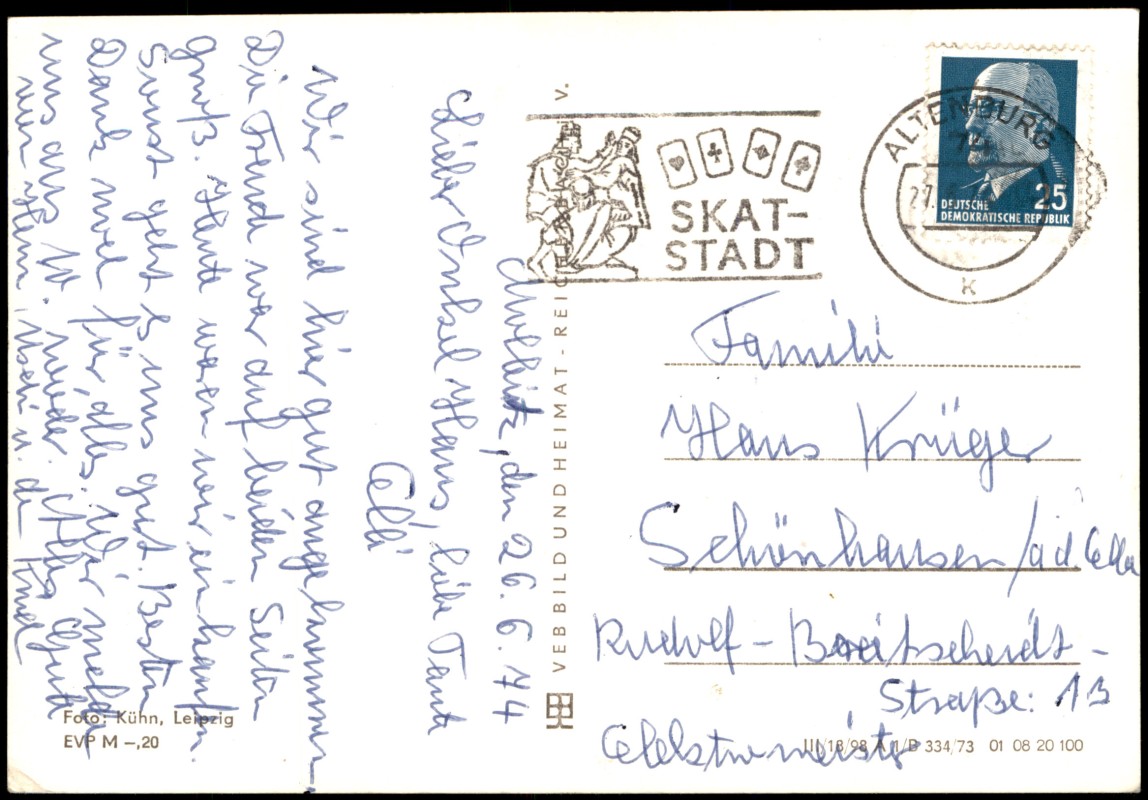 Meuselwitz, den 26. 6. 74
Lieber Onkel Hans, liebe Tante
Elli
Wir sind hier gut angekommen.
Die Freud war auf beiden Seiten
groß. Heute waren wir einkaufen.
Sonst geht es uns gut. Besten
Dank noch für alles. Wir melden
uns am 10. wieder. Alles Gute
Uschi u. die Kind
Foto: Kühn, Leipzig
EVP M –,20
VEB BILD UND HEIMAT - REICHENBACH I. V.
SKAT-
STADT
ALTENBURG
27.
K
25
DEUTSCHE
DEMOKRATISCHE REPUBLIK
Familie
Hans Krüger
Schönhausen/a d Elbe
Rudolf-Breitscheidt-
Straße: 13
III/18/98 A 1/B 334/73 01 08 20 100